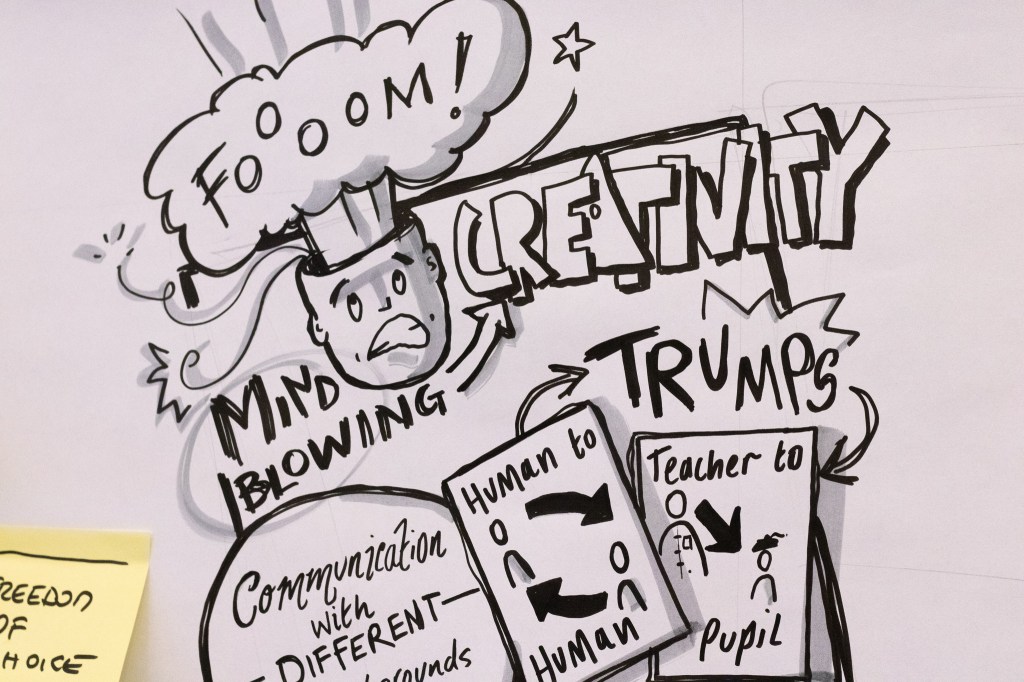 FOOOOM!
CREATIVITY
MIND
BLOWING
TRUMPS
Human to
Human
Teacher to
Pupil
Communication
with
DIFFERENT
OF